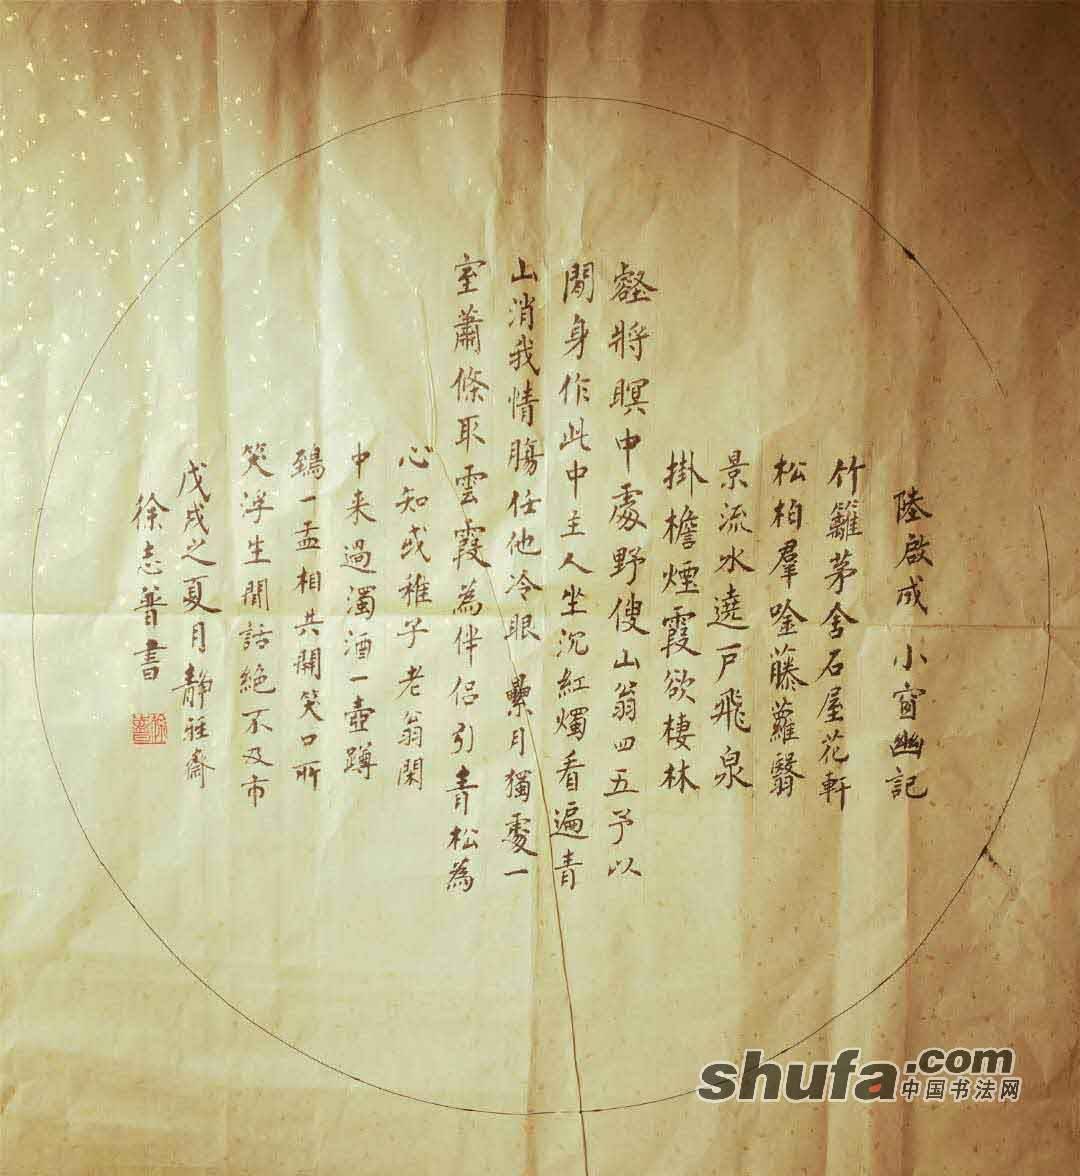 陸啟成小窗幽記
竹籬茅舍石屋花軒
松柏羣唫藤蘿翳
景流水遶戸飛泉
掛檐煙霞欲棲林
壑將瞑中處野傁山翁四五予以
閒身作此中主人坐沉紅燭看遍青
山消我情腸任他冷眼 纍月獨處一
室蕭條取雲霞為伴侣引青松為
心知或稚子老翁閑
中来過濁酒一壺蹲
鴟一盂相共開笑口所
笑浮生閒話絕不及市
戊戌之夏月静 齋
徐志普書
shufa.com
中国书法网